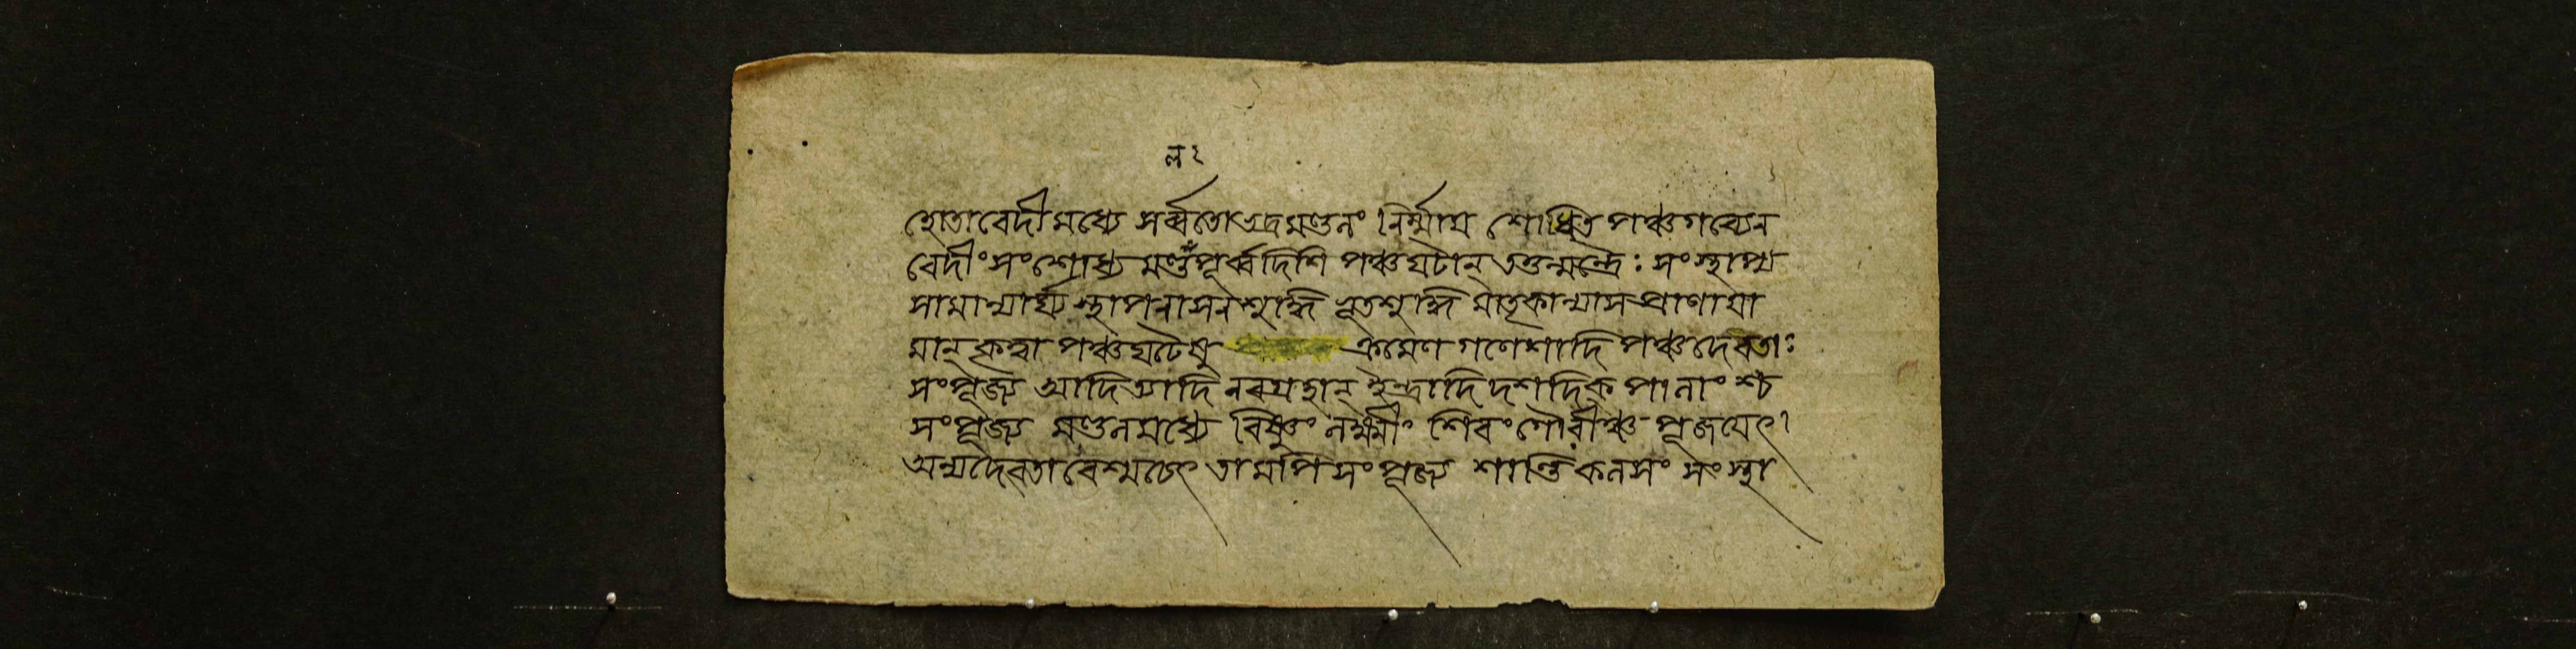 ল ২
হোতা বেদীমধ্যে সর্ব্বতোভদ্রমণ্ডলং নির্ম্মায় শোধিত পঞ্চগব্যেন
বেদীং সংশোধ্য মণ্ড পূর্ব্বদিশি পঞ্চঘটান্ তত্তন্মন্ত্রৈঃ সংস্থাপ্য
সামান্যার্ঘ্য স্থাপনাসনশুদ্ধি ভূতশুদ্ধি মাতৃকান্যাস প্রাণায়া
মান্ কৃত্বা পঞ্চঘটেষু ক্রমেণ গণেশাদি পঞ্চদেবতাঃ
সংপূজ্য আদিত্যাদি নবগ্রহান্ ইন্দ্রাদি দশদিকপালাংশ্চ
সংপূজ্য মণ্ডলমধ্যে বিষ্ণুং লক্ষ্মীং শিবং গৌরীঞ্চ পূজয়েৎ।
অন্যদেবতাবেশ্মচেৎ তামপি সংপূজ্য শান্তিকলসং সংস্থা